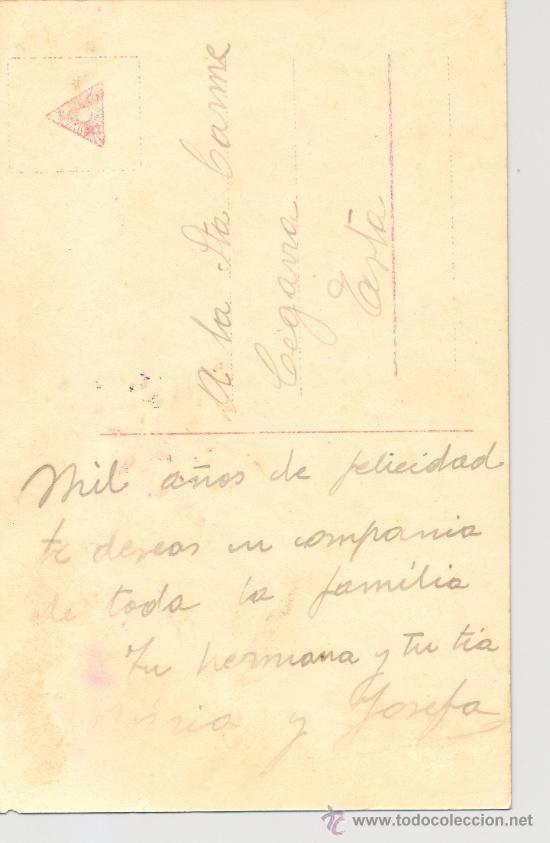 A la Sta Carme
Cegarra
Mil años de felicidad
te deseas en compania
de toda la família
Tu hermana y tu tía
y Josefa
www.todocoleccion.net